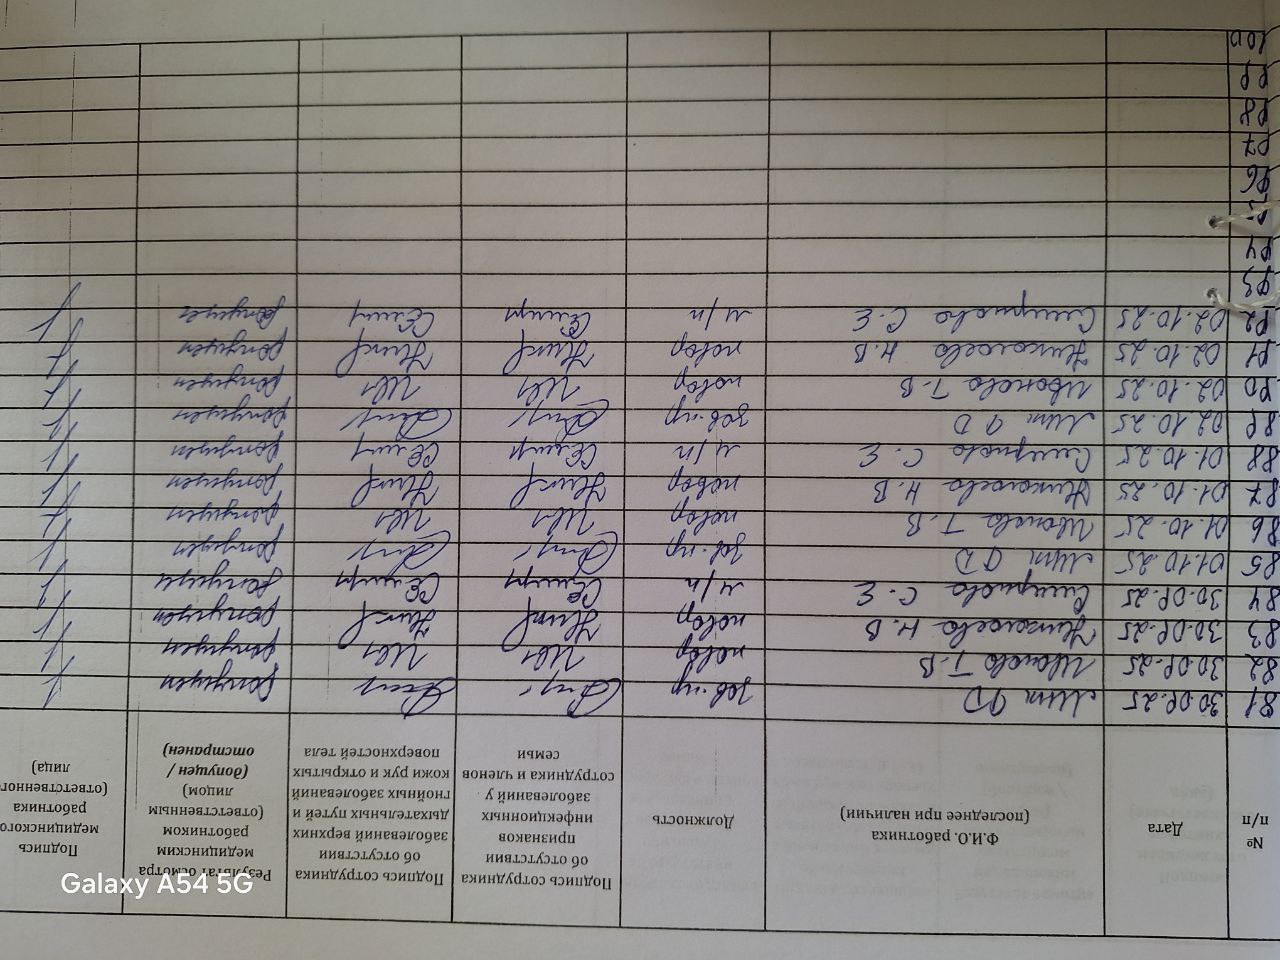 № п/п | Дата | Ф.И.О. работника (последнее при наличии) | Должность | Подпись сотрудника об отсутствии признаков инфекционных заболеваний у сотрудника и членов семьи | Подпись сотрудника об отсутствии заболеваний верхних дыхательных путей и гнойных заболеваний кожи рук и открытых поверхностей тела | Результат осмотра медицинским работником (ответственным лицом) (допущен / отстранен) | Подпись медицинского работника (ответственного лица)
81 30.09.25 зав.пр допущен
82 30.09.25 Иванова Т.В повар Ив допущен
83 30.09.25 Николаева Н.В повар Ник допущен
84 30.09.25 Смирнова С.Е м/п допущен
85 01.10.25 зав.пр допущен
86 01.10.25 Иванова Т.В повар Ив допущен
87 01.10.25 Николаева Н.В повар Ник допущен
88 01.10.25 Смирнова С.Е м/п допущен
89 02.10.25 зав.пр допущен
90 02.10.25 Иванова Т.В повар Ив допущен
91 02.10.25 Николаева Н.В повар Ник допущен
92 02.10.25 Смирнова С.Е м/п допущен
93
94
95
96
97
98
99
100
Galaxy A54 5G